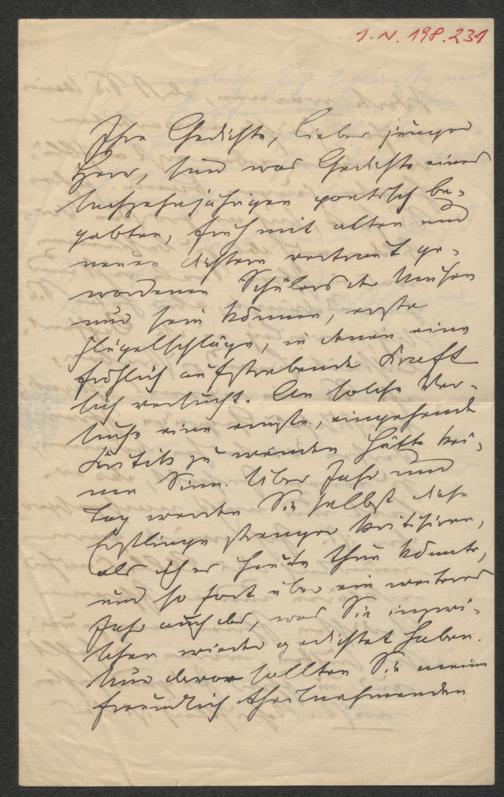 I.N. 198.231
Ihre Gedichte, lieber junger
Herr, sind was Gedichte eines
sechzehnjährigen poetisch be-
gabten, früh mit alten und
neuen Dichtern vertraut ge-
wordenen Schülers der Musen
nur sein können, erste
Flügelschläge, in denen eine
fröhlich aufstrebende Kraft
sich versucht. An solche Ver-
suche eine ernste, eingehende
Kritik zu wenden hätte kei-
nen Sinn. Über Jahr und
Tag werden Sie selbst diese
Erstlinge strenger kritisiren,
als ich es heute thun könnte,
und so fort über ein weiteres
Jahr auch das, was Sie inzwi-
schen wieder gedichtet haben.
Nur davor sollten Sie mein
freundlich theilnehmenden